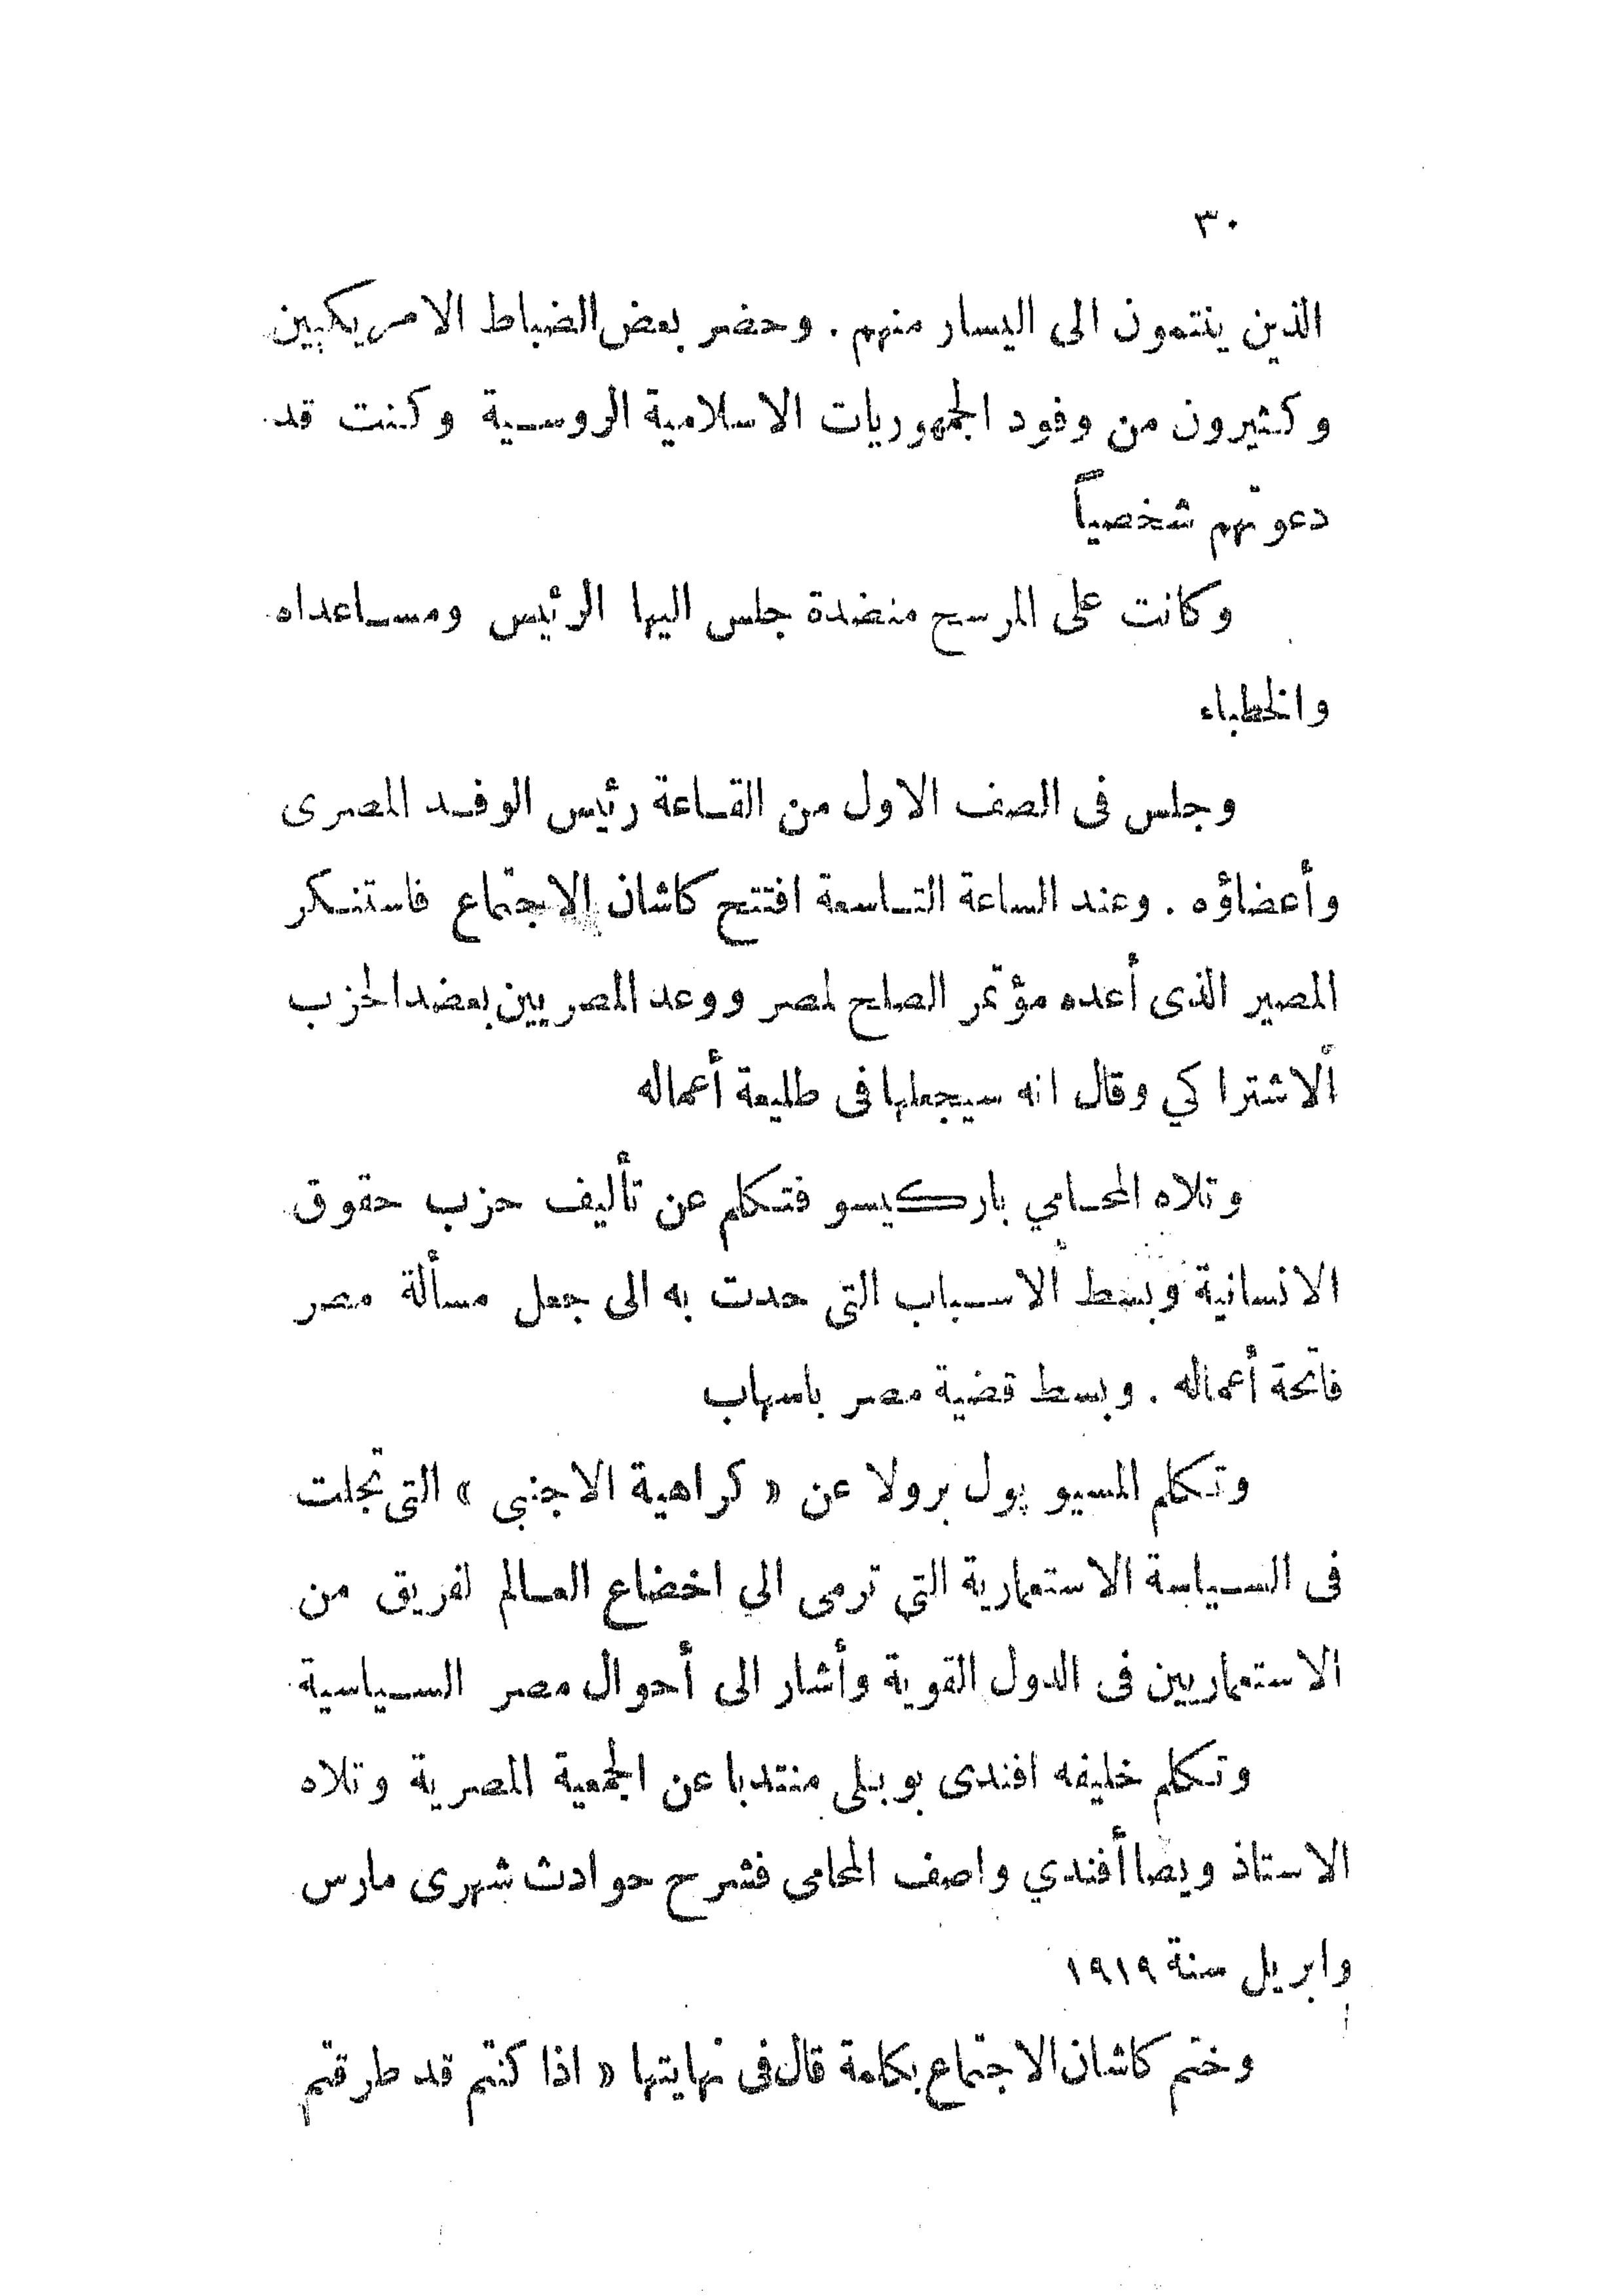 ٣٠
الذين ينتمون الى اليسار منهم . وحضر بعض الضباط الامريكيين
وكثيرون من وفود الجمهوريات الاسلامية الروسية وكنت قد
دعوتهم شخصياً
وكانت على المرسح منضدة جلس اليها الرئيس ومساعداه
والخطباء
وجلس فى الصف الاول من القاعة رئيس الوفد المصرى
وأعضاؤه . وعند الساعة التاسعة افتتح كاشان الاجتماع فاستنكر
المصير الذى أعده مؤتمر الصلح لمصر ووعد المصريين بعضد الحزب
الاشتراكي وقال انه سيجعلها فى طليعة أعماله
وتلاه المحامي باركيسو فتكلم عن تأليف حزب حقوق
الانسانية وبسط الاسباب التى حدت به الى جعل مسألة مصر
فاتحة أعماله . وبسط قضية مصر باسهاب
وتكلم المسيو بول برولا عن « كراهية الاجنبي » التى تجلت
فى السياسة الاستعمارية التي ترمى الي اخضاع العالم لفريق من
الاستعماريين فى الدول القوية وأشار الى أحوال مصر السياسية
وتكلم خليفه افندى بوبلى منتدبا عن الجمعية المصرية وتلاه
الاستاذ ويصا أفندي واصف المحامى فشرح حوادث شهرى مارس
وابريل سنة ١٩١٩
وختم كاشان الاجتماع بكلمة قال فى نهايتها « اذا كنتم قد طرقتم